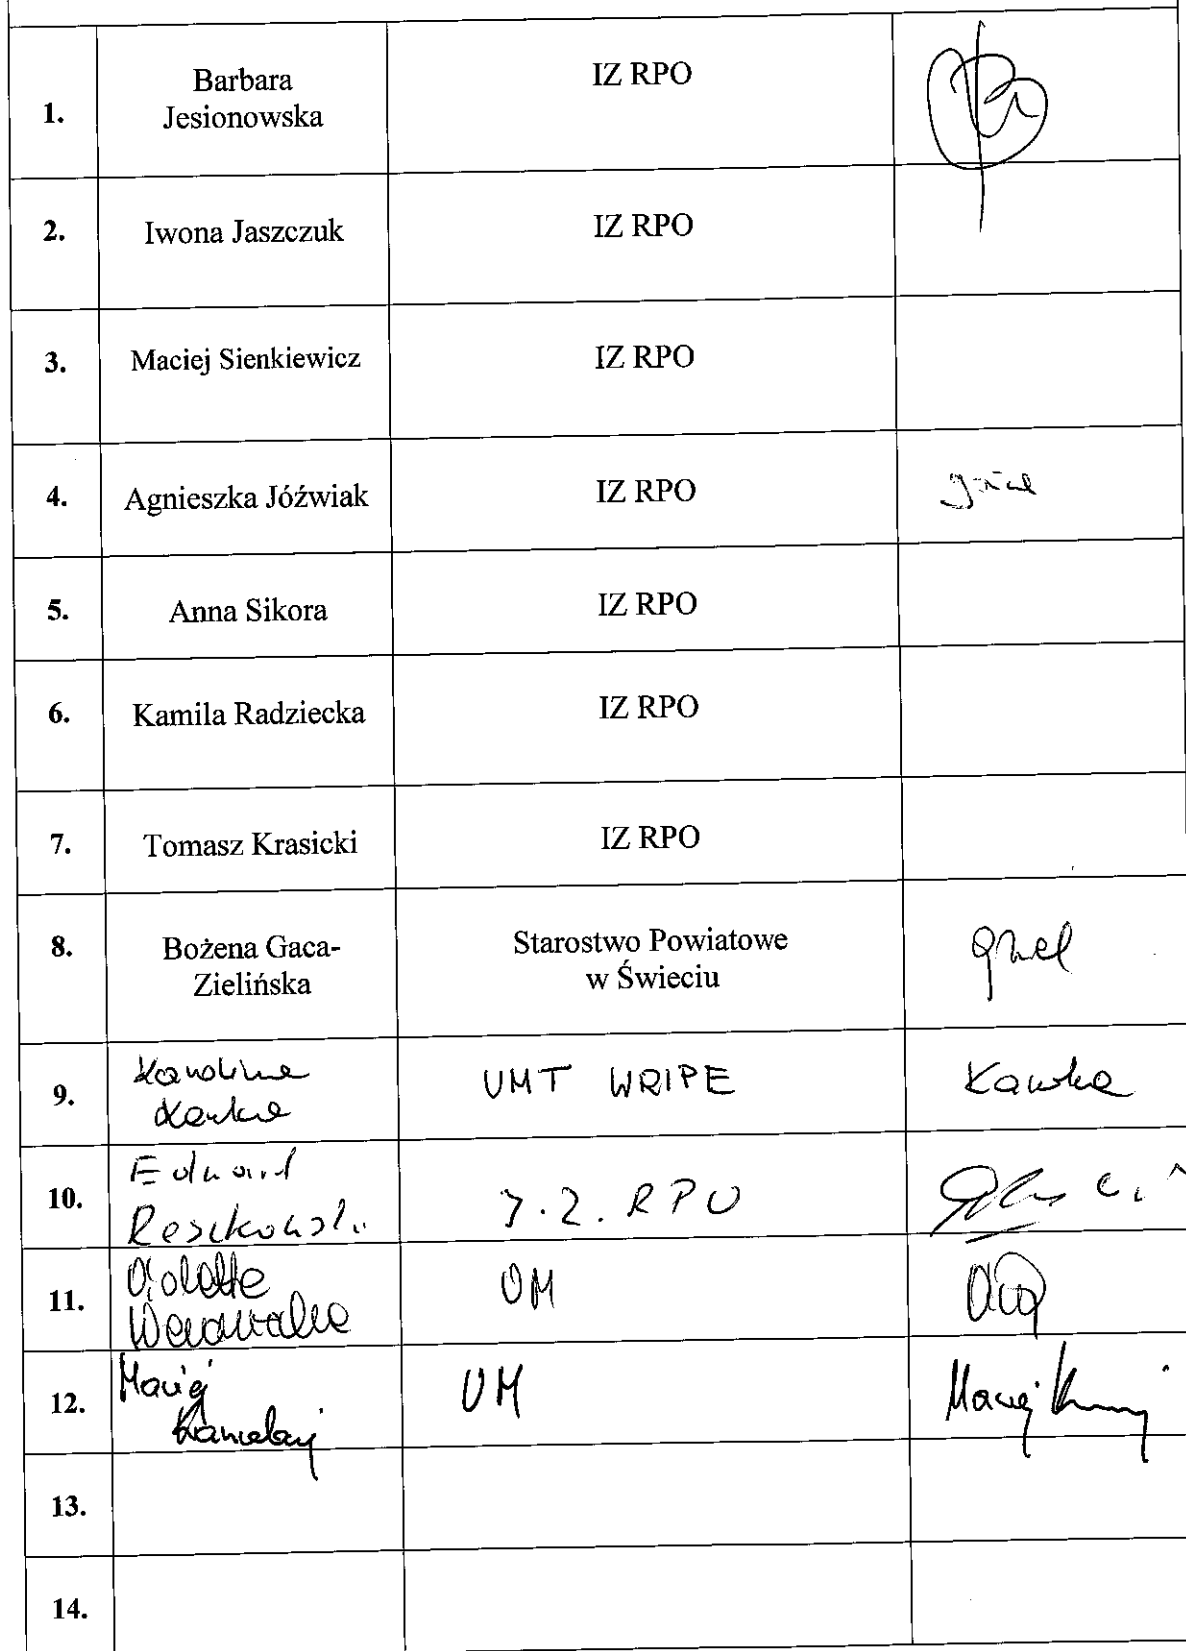 1.
Barbara
Jesionowska
IZ RPO
2.
Iwona Jaszczuk
IZ RPO
3.
Maciej Sienkiewicz
IZ RPO
4.
Agnieszka Jóźwiak
IZ RPO
5.
Anna Sikora
IZ RPO
6.
Kamila Radziecka
IZ RPO
7.
Tomasz Krasicki
IZ RPO
8.
Bożena Gaca-
Zielińska
Starostwo Powiatowe
w Świeciu
9.
Karolina
Kawka
UMT WRIPE
Kawka
10.
Edward
Reszkowski
I.Z. RPO
11.
Violetta
UM
12.
Maciej
UM
Maciej
13.
14.